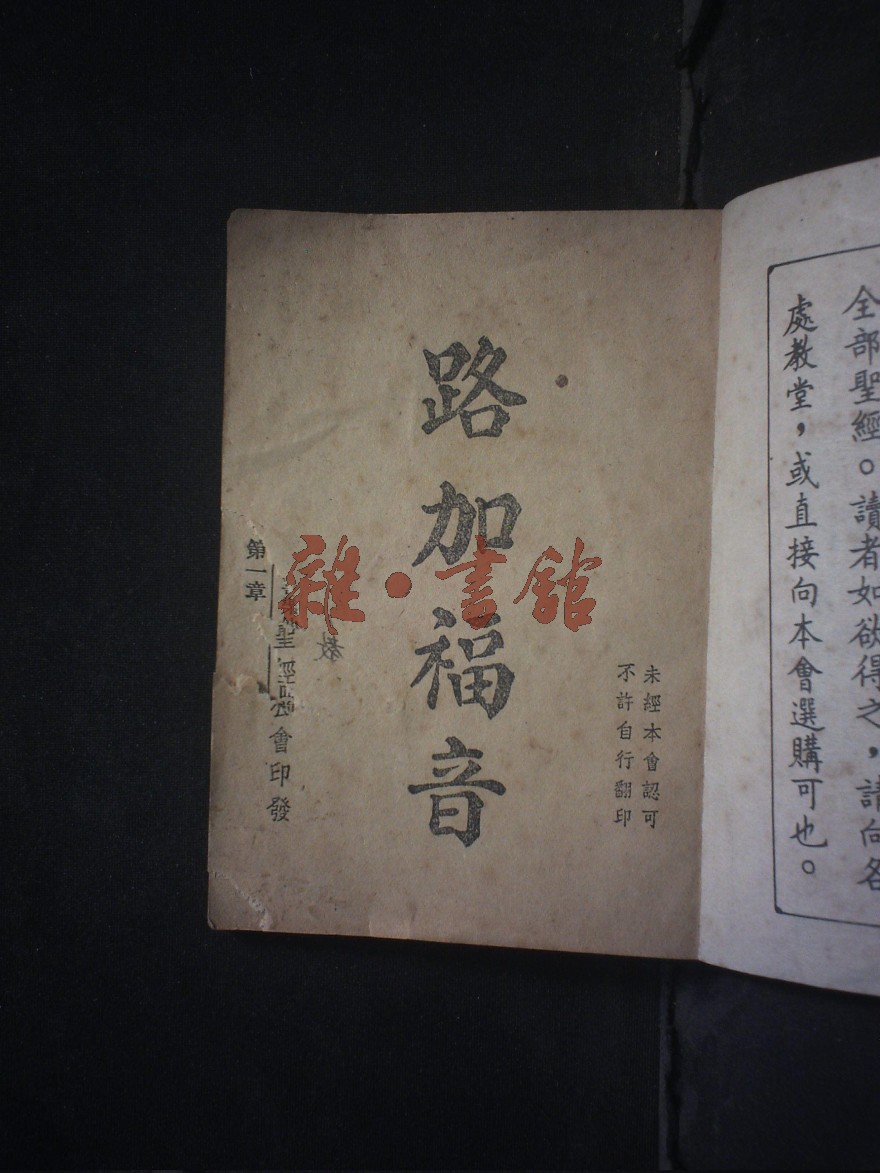 全部聖經。讀者如欲得之，請向各
處教堂，或直接向本會選購可也。
未經本會認可
不許自行翻印
路加福音
教
聖經會印發
第一章
雜·書館